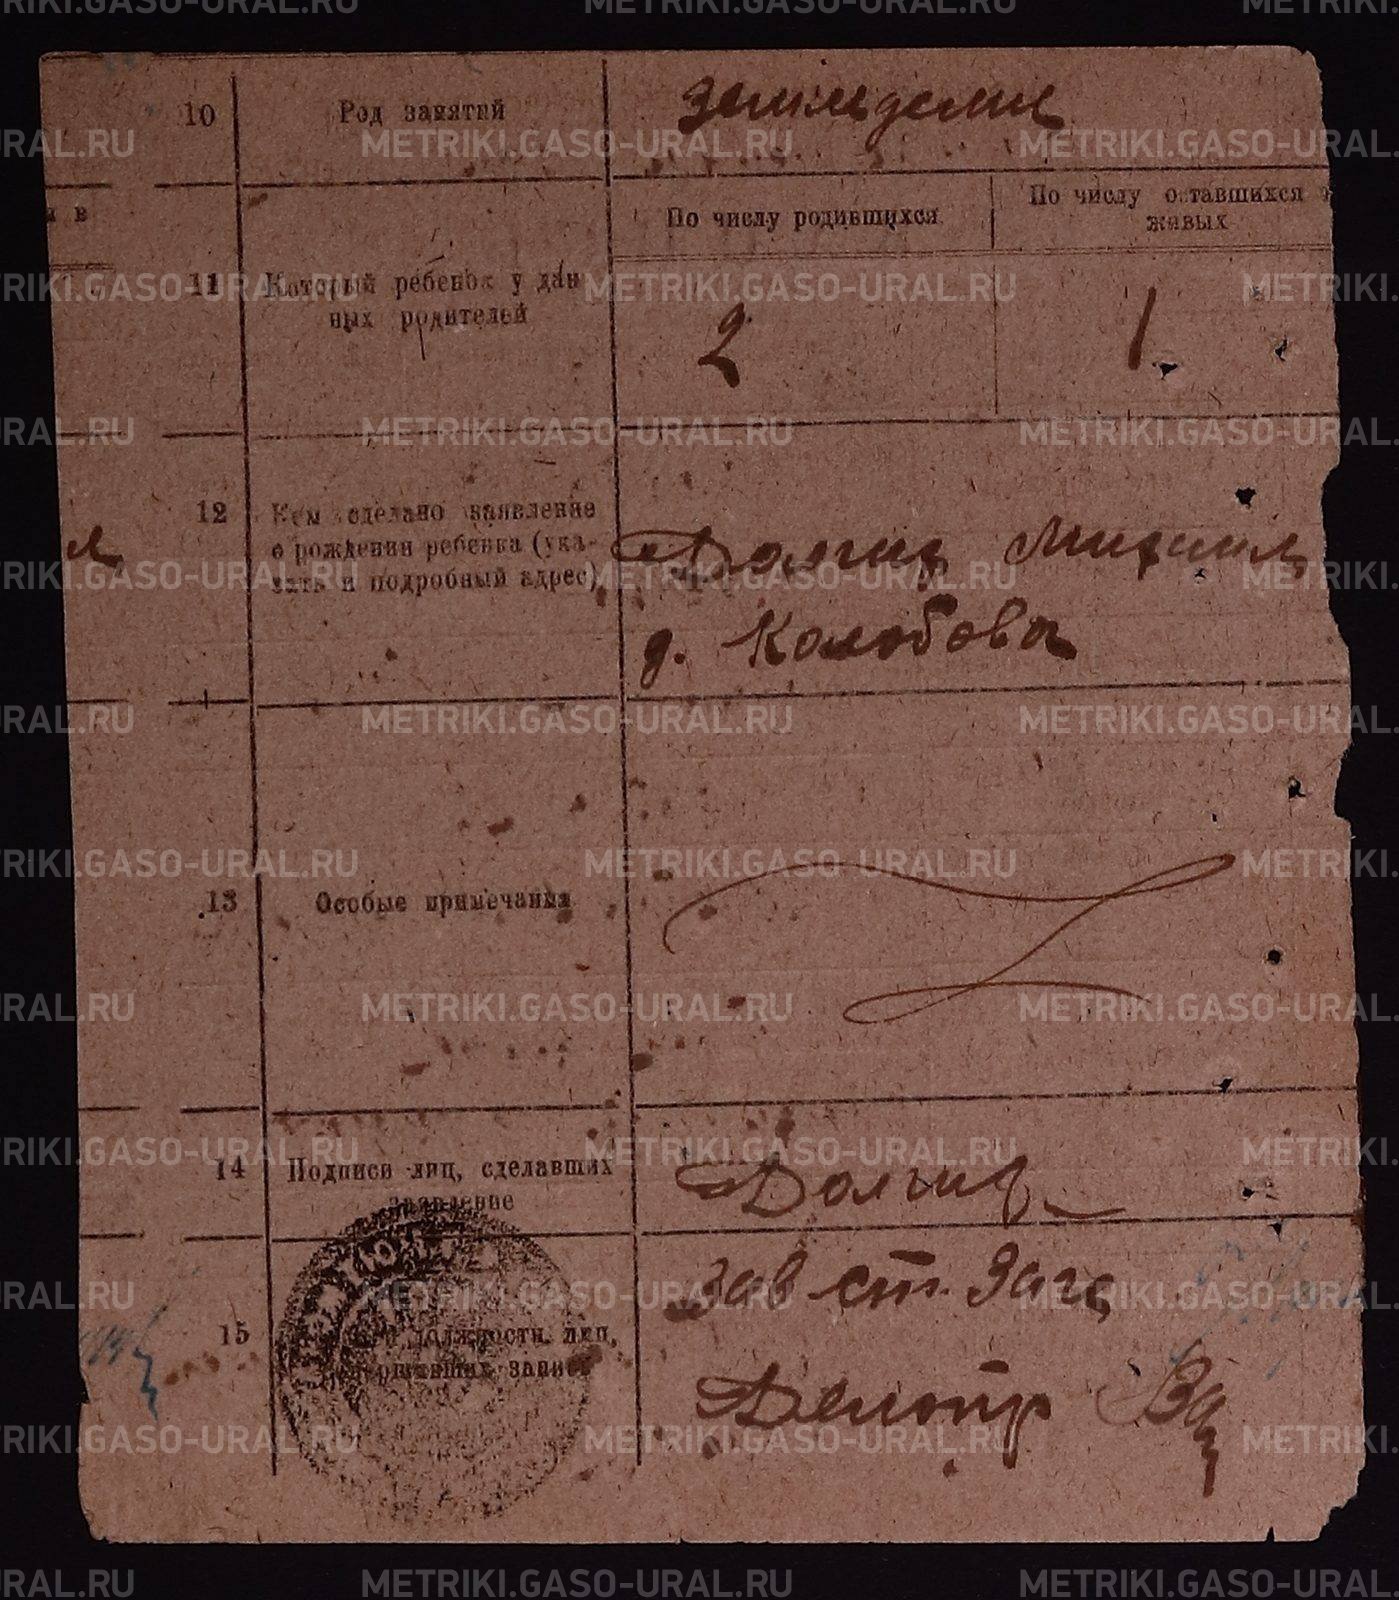 10 Род занятий земледелие
По числу родившихся
По числу оставшихся
живых
и в
11 Который ребенок у дан-
ных родителей
2 1
12 Кем сделано заявление
о рождении ребенка (ука-
зать и подробный адрес)
Долгих Михаил
д. Колобова
13 Особые примечания
14 Подписи лиц, сделавших
заявление
Долгих
15 должности лиц,
совершивших запись
Зав ст. Загс
Делопр
METRIKI.GASO-URAL.RU